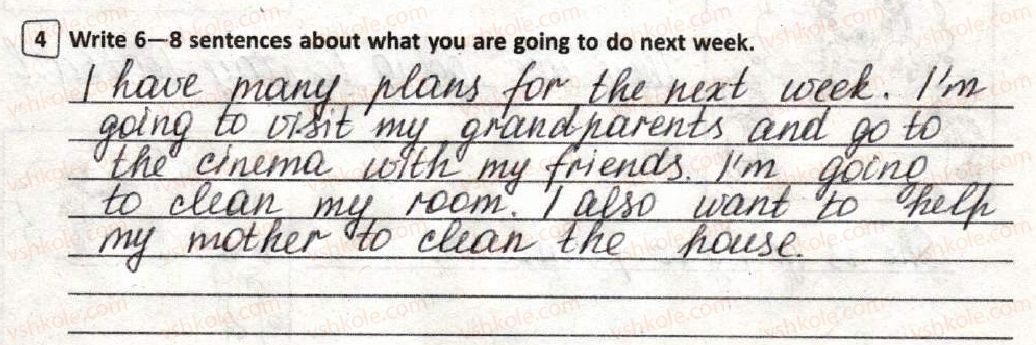 4 Write 6—8 sentences about what you are going to do next week.
I have many plans for the next week. I'm
going to visit my grandparents and go to
the cinema with my friends. I'm going
to clean my room. I also want to help
my mother to clean the house.